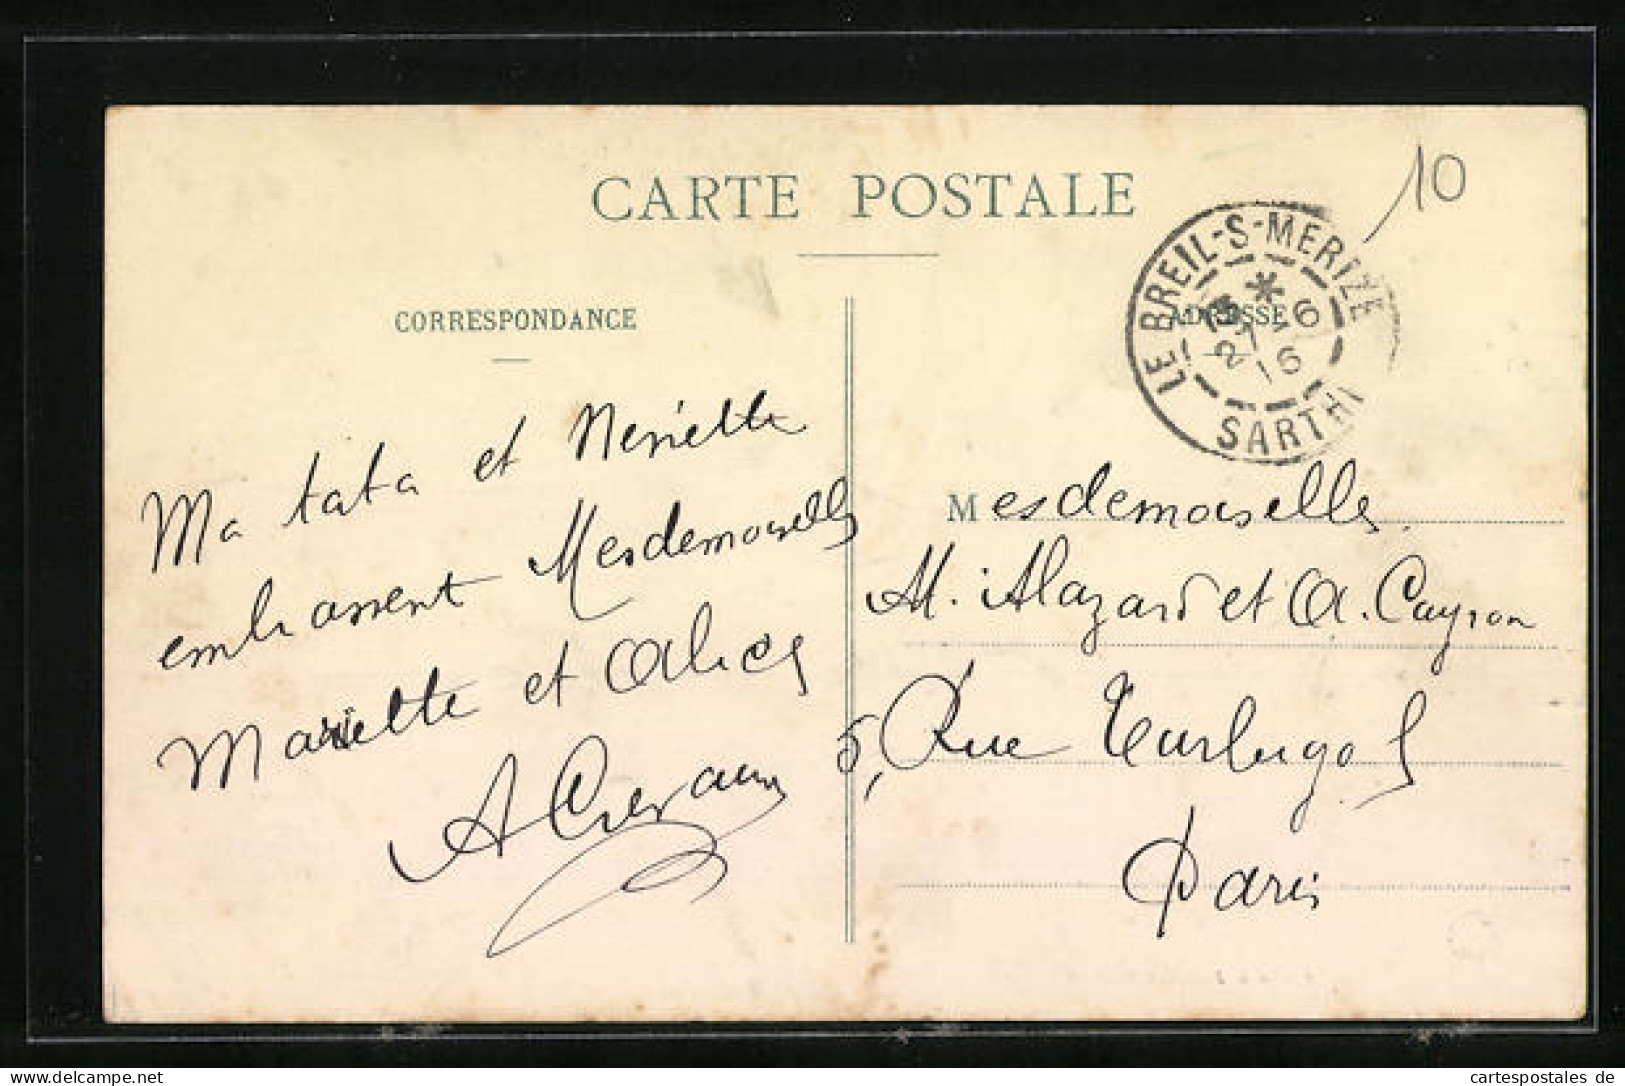 CARTE POSTALE
10
CORRESPONDANCE
ADRESSE
LE BREIL-S-MERIZE
27 -6
16
SARTHE
Ma tata et
embrassent Mesdemoiselles
Mariette et Alice
A
Mesdemoiselles
M. Mazard et A. Cayron
5, Rue Turbigo
Paris
delcampe.net
cartespostales de